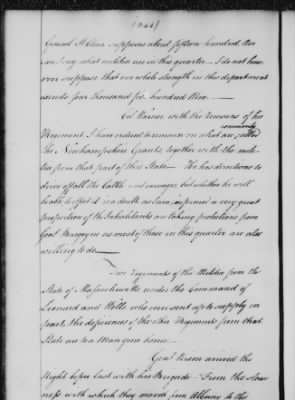 (244)
General St Clair supposes about fifteen hundred. Nor
can I say what militia are in this quarter — I do not how-
ever suppose that our whole strength in this department
exceeds four thousand five hundred Men —
Col Warner with the remains of his
commonly
Regiment I have ordered to remain on what are called
the Newhampshire Grants, together with the mili-
tia from that part of this State — He has directions to
drive off all the Cattle and carriages but whether he will
be able to effect it is a doubt as I am informed a very great
proportion of the Inhabitants are taking protections from
Genl Burgoyne as most of those in this quarter are also
willing to do —
Two Regiments of the Militia from the
State of Massachusetts under the Command of
Leonard and Wells, who were sent up to supply in
part, the deficiency of the Nine Regiments from that
State are to a Man gone home —
Genl Nixon arrived the
Night before last with his Brigade — From the slow-
ness with which they moved from Albany to this